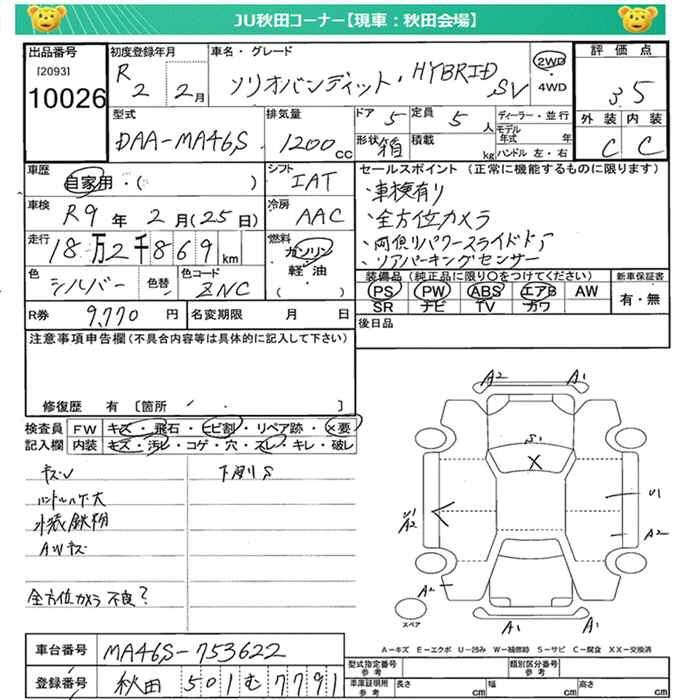 JU秋田コーナー【現車：秋田会場】
出品番号
[2093]
10026
初度登録年月
R 2 2月
車名・グレード
ソリオバンディット・HYBRID SV
2WD
・
4WD
評価点
3.5
外装 内装
C C
型式
DAA-MA46S
排気量
1200cc
ドア 5
定員 5人
形状 箱
積載 kg
ディーラー・並行
モデル年式 年
ハンドル 左・右
車歴
自家用・( )
シフト
IAT
車検
R9年2月(25日)
冷房
AAC
走行
18万2千869km
燃料
ガソリン
軽・油
( )
色
シルバー
色替
色コード
ZNC
R券 9,770円
名変期限 月 日
セールスポイント (正常に機能するものに限ります)
・車検有り
・全方位カメラ
・両側リパワースライドドア
・リアパーキングセンサー
装備品(純正品に限り○をつけてください)
PS PW ABS エアB AW
SR ナビ TV カワ
新車保証書
有・無
後日品
注意事項申告欄(不具合内容等は具体的に記入して下さい)
修復歴 有 [箇所 ]
検査員
記入欄
FW キズ・飛石・ヒビ割・リペア跡・×要
内装 キズ・汚レ・コゲ・穴・スレ・キレ・破レ
キズレ
下廻りS
ハンドルハゲ大
外装鉄粉
AWキズ
全方位カメラ 不良?
A2 A1
S1
X
U1
A2
U1
A2
A2
A1 A1
スペア
A－キズ E－エクボ U－凹み W－補修跡 S－サビ C－腐食 XX－交換済
車台番号 MA46S-753622
登録番号 秋田 501 む 7791
型式指定番号
参考
類別区分番号
参考
車庫証明用
参考
長さ cm 幅 cm 高さ cm